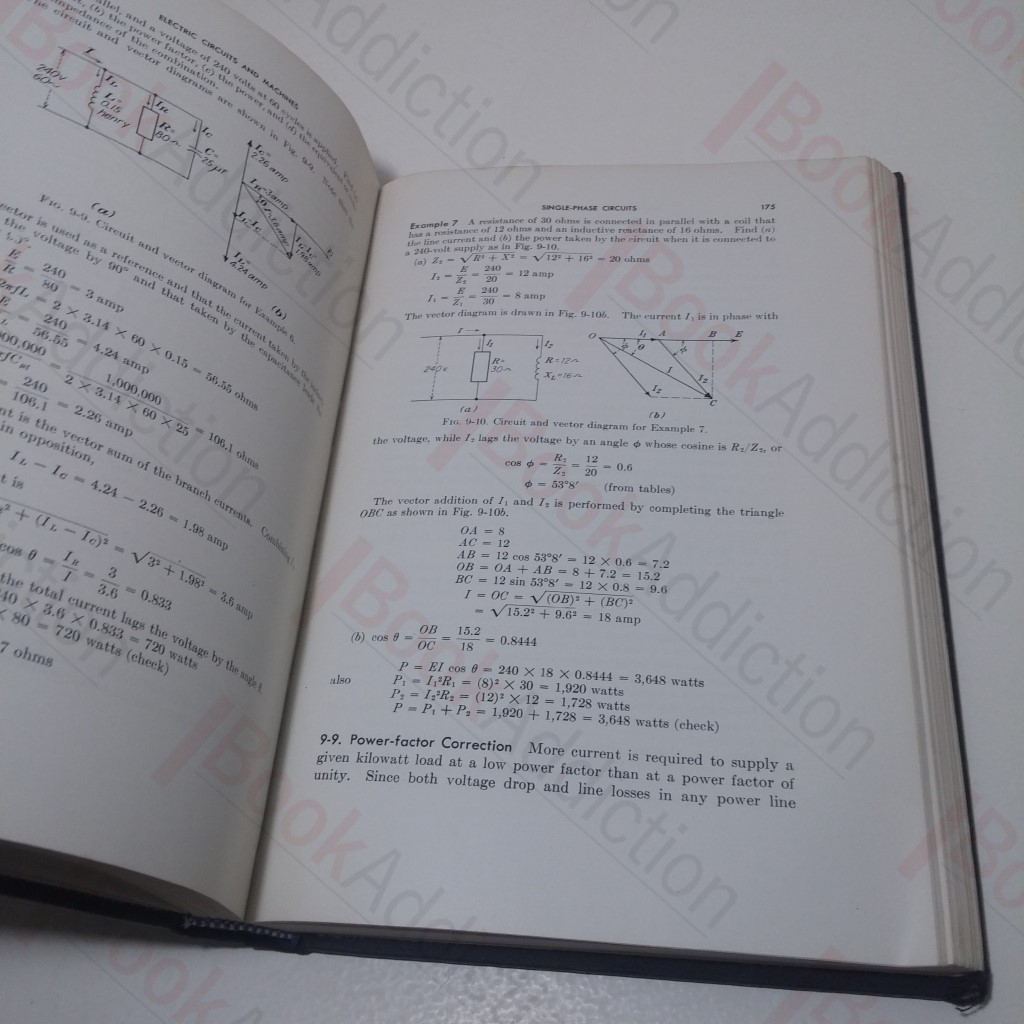 ELECTRIC CIRCUITS AND MACHINES
allel, and a voltage of 240 volts at 60 cycles is applied.
(b) the power factor, (c) the power, and (d) the equivalent
impedance of the combination.
he circuit and vector diagrams are shown in Fig. 9-9.
I
240v
60~
IL
L=
0.15
henry
IR
R=
80Ω
IC
C=
25μf
IC=
2.26 amp
IR=3amp
IL=
4.24 amp
E
(a)
(b)
FIG. 9-9. Circuit and vector diagram for Example 6.
ector is used as a reference and that the current taken by the
the voltage by 90° and that taken by the capacitance leads
E/R = 240/80 = 3 amp
2πfL = 2 × 3.14 × 60 × 0.15 = 56.55 ohms
240/56.55 = 4.24 amp
1,000,000/2 × 3.14 × 60 × 25 = 106.1 ohms
240/106.1 = 2.26 amp
nt is the vector sum of the branch currents.
in opposition,
IL − IC = 4.24 − 2.26 = 1.98 amp
t is
² + (IL − IC)² = √3² + 1.98² = 3.6 amp
cos θ = IR/I = 3/3.6 = 0.833
the total current lags the voltage by the angle θ.
40 × 3.6 × 0.833 = 720 watts
× 80 = 720 watts (check)
7 ohms
SINGLE-PHASE CIRCUITS 175
Example 7 A resistance of 30 ohms is connected in parallel with a coil that
has a resistance of 12 ohms and an inductive reactance of 16 ohms. Find (a)
the line current and (b) the power taken by the circuit when it is connected to
a 240-volt supply as in Fig. 9-10.
(a) Z₂ = √R² + X² = √12² + 16² = 20 ohms
I₂ = E/Z₂ = 240/20 = 12 amp
I₁ = E/Z₁ = 240/30 = 8 amp
The vector diagram is drawn in Fig. 9-10b. The current I₁ is in phase with
I
240v
I₁
R=
30Ω
I₂
R=12Ω
XL=16Ω
O I₁ A B E
φ θ φ
I
I₂ I₂
C
(a)
(b)
FIG. 9-10. Circuit and vector diagram for Example 7.
the voltage, while I₂ lags the voltage by an angle φ whose cosine is R₂/Z₂, or
cos φ = R₂/Z₂ = 12/20 = 0.6
φ = 53°8′ (from tables)
The vector addition of I₁ and I₂ is performed by completing the triangle
OBC as shown in Fig. 9-10b.
OA = 8
AC = 12
AB = 12 cos 53°8′ = 12 × 0.6 = 7.2
OB = OA + AB = 8 + 7.2 = 15.2
BC = 12 sin 53°8′ = 12 × 0.8 = 9.6
I = OC = √(OB)² + (BC)²
= √15.2² + 9.6² = 18 amp
(b) cos θ = OB/OC = 15.2/18 = 0.8444
P = EI cos θ = 240 × 18 × 0.8444 = 3,648 watts
also P₁ = I₁²R₁ = (8)² × 30 = 1,920 watts
P₂ = I₂²R₂ = (12)² × 12 = 1,728 watts
P = P₁ + P₂ = 1,920 + 1,728 = 3,648 watts (check)
9-9. Power-factor Correction More current is required to supply a
given kilowatt load at a low power factor than at a power factor of
unity. Since both voltage drop and line losses in any power line
BookAddiction